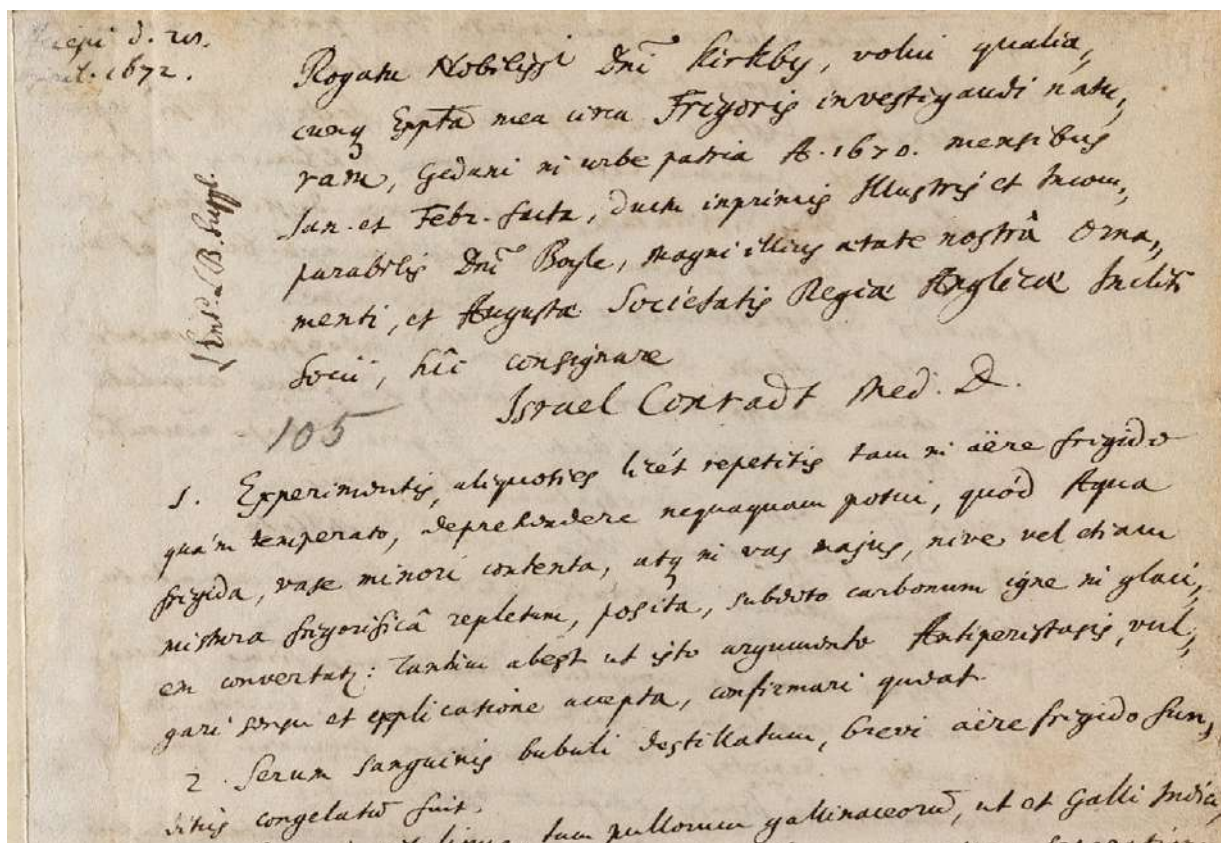 d. 20.
1672.
Rogatu Nobilissi Dni Kirkby, volui qualia,,
cunq Exppta mea circa Frigoris investigandi natu,,
ram, Gedani in urbe patria A. 1670. mensibus
Jan. et Febr. facta, ductu inprimis Illustris et Incom,,
parabilis Dni Boyle, magni illius ætate nostrâ Orna,,
menti, et Augustæ Societatis Regiæ Anglicæ Incliti
Socii, hîc consignare
Israel Conradt Med. D.
L.B. Suppl.
105
1. Experimentis, aliquoties licét repetitis tam in aëre frigido
quám temperato, deprehendere nequaquam potui, quód Aqua
frigida, vase minori contenta, atq in vas majus, nive vel etiam
mistura frigorificâ repletum, posita, subdito carbonum igne in glaci,,
em convertat: Tantum abest ut isto argumento Antiperistasis, vul,,
gari sensu et explicatione accepta, confirmari queat.
2. Serum sanguinis bubuli destillatum, brevi aëre frigido fun,,
ditus congelatū fuit.
tam pullorum gallinaceorū, ut et Galli Indici,